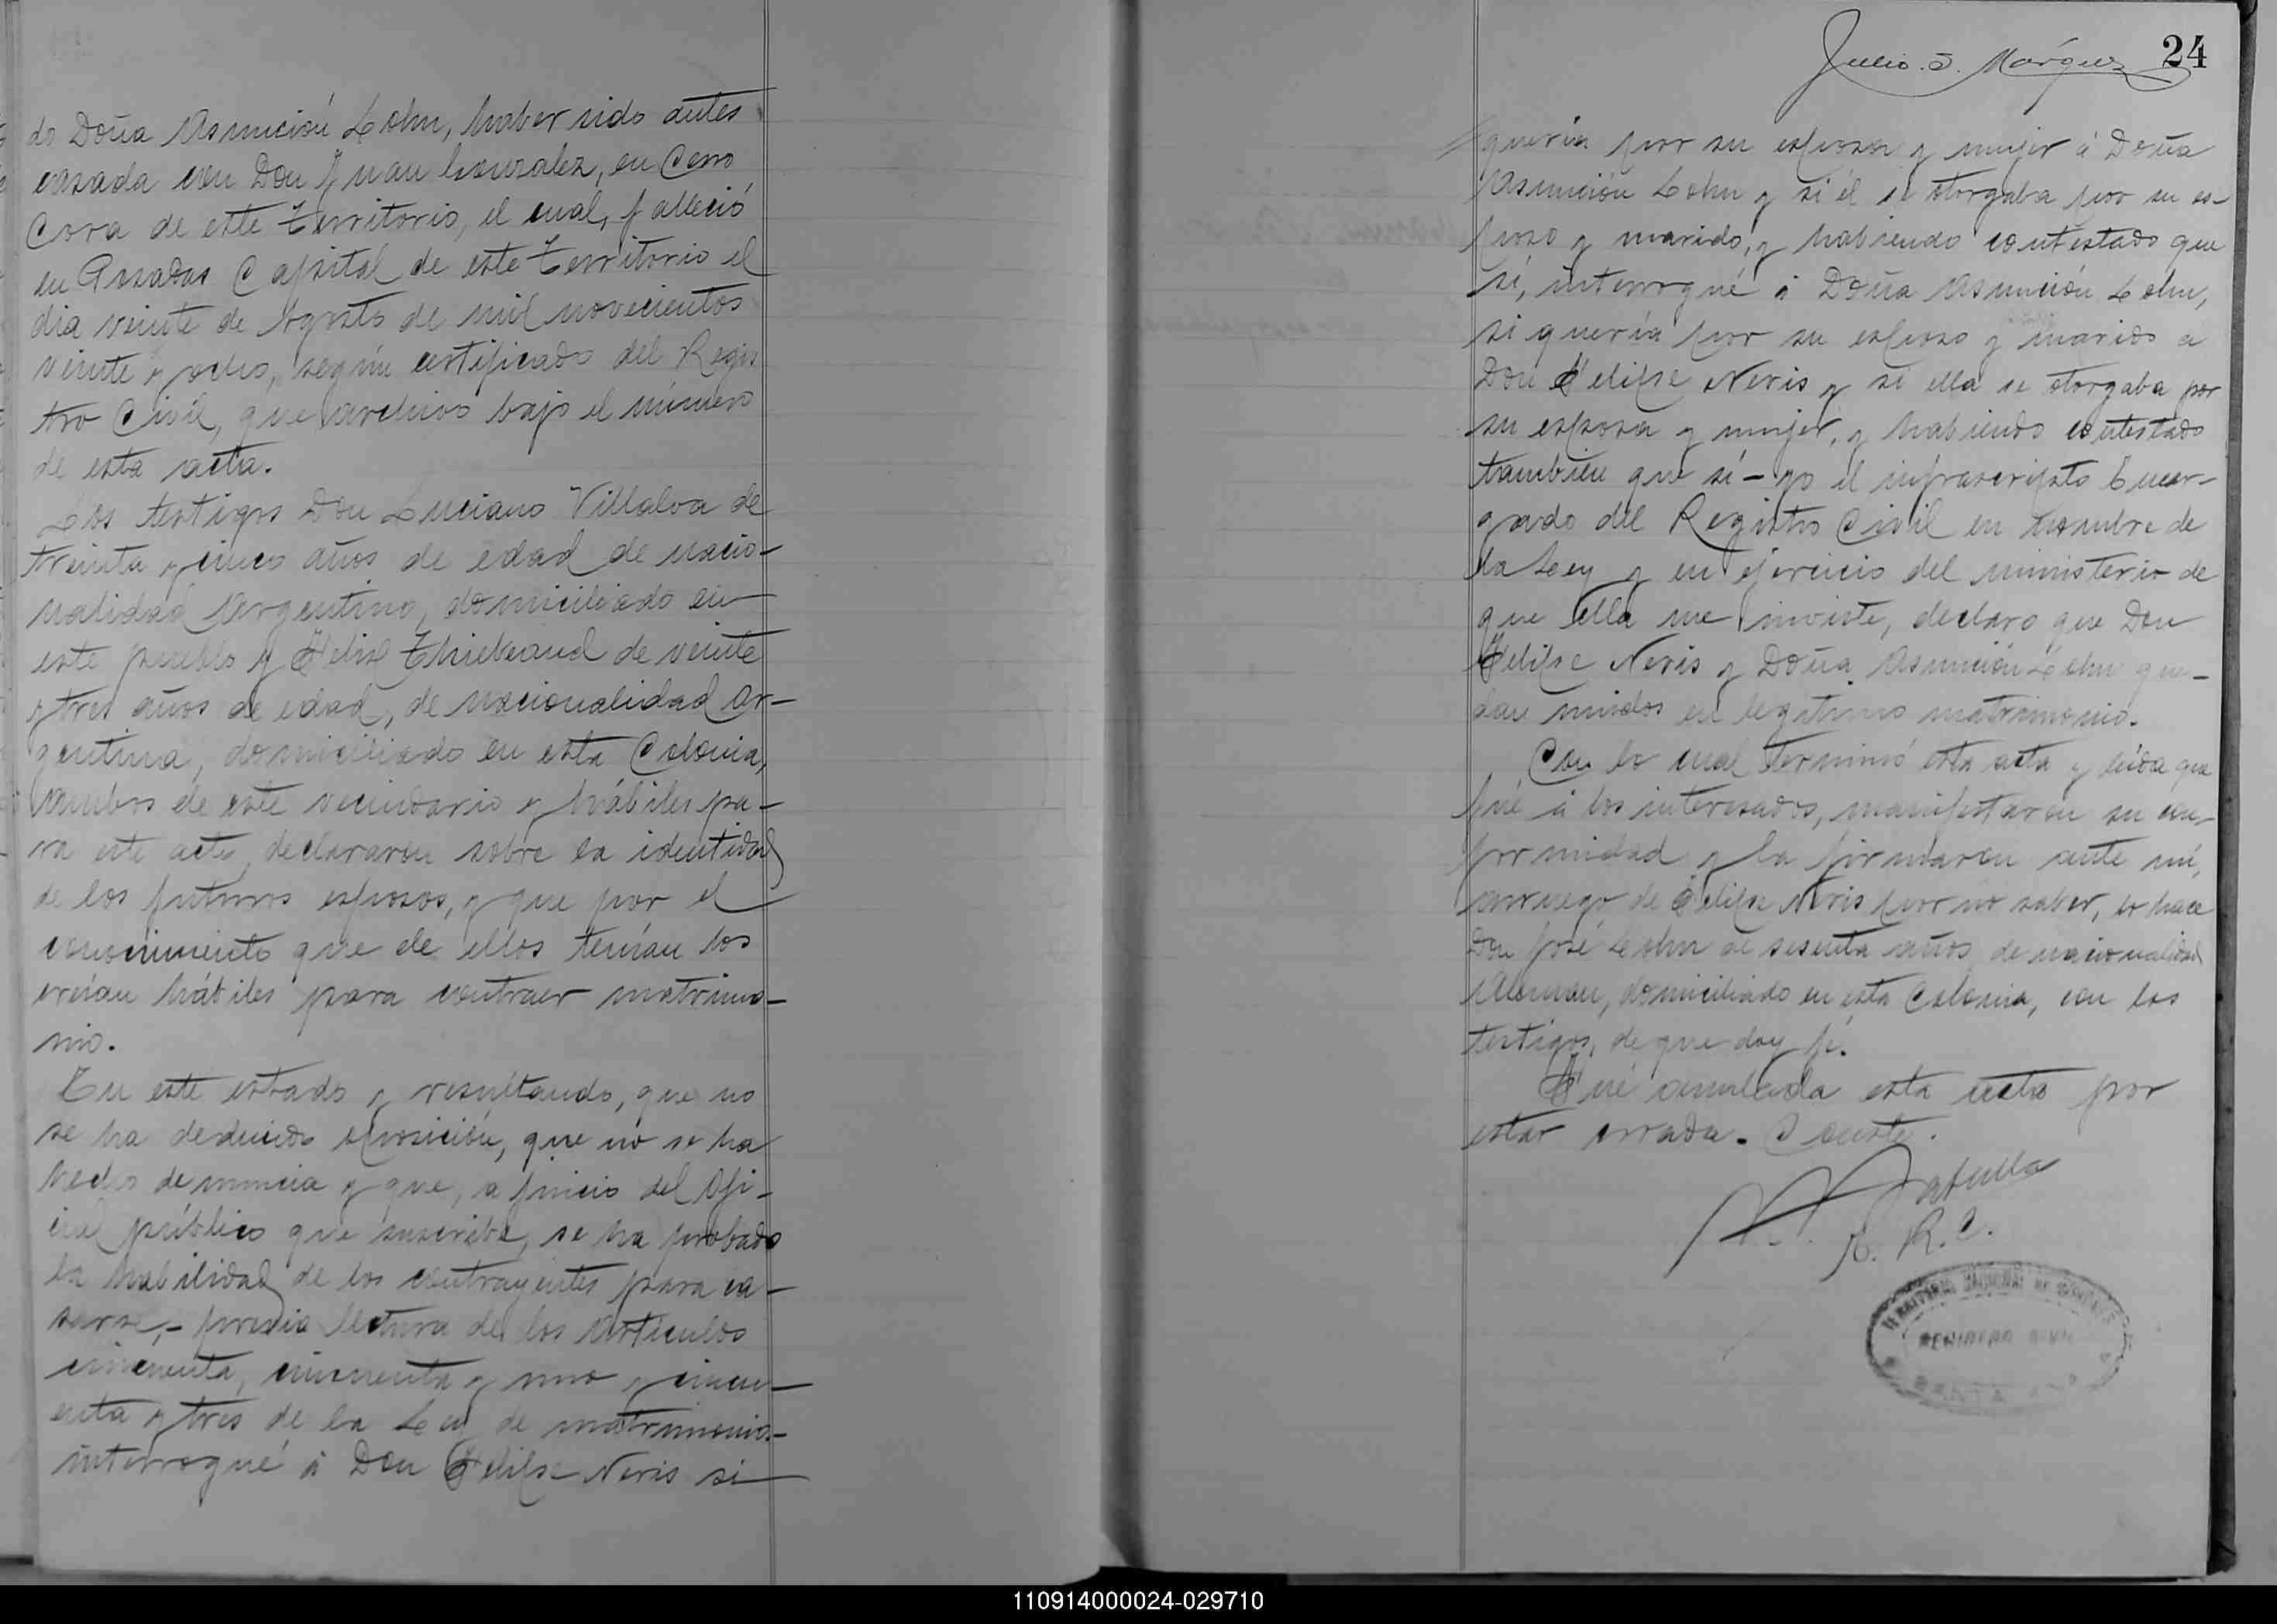 do Doña Asunción Lohn, haber sido antes
casada con Don Juan Gonzalez, en Cerro
Cora de este Territorio, el cual, falleció
en Posadas Capital de este Territorio el
dia veinte de Agosto de mil novecientos
veinte y ocho, según certificado del Regis
tro Civil, que archivo bajo el número
de esta acta.
Los testigos Don Luciano Villalva de
treinta y cinco años de edad de nacio-
nalidad Argentino, domiciliado en
este pueblo y Felix Thiebaud de veinte
y tres años de edad, de nacionalidad Ar-
gentina, domiciliado en esta Colonia,
ambos de este vecindario y hábiles pa-
ra este acto, declararon sobre la identidad
de los futuros esposos, y que por el
conocimiento que de ellos tenían los
creían hábiles para contraer matrimo-
nio.
En este estado y resultando, que no
se ha deducido oposición, que no se ha
hecho denuncia y que, a juicio del Ofi-
cial público que suscribe, se ha probado
la habilidad de los contrayentes para ca-
sarse,- previa lectura de los Artículos
cincuenta, cincuenta y uno y cincu-
enta y tres de la Ley de matrimonio-
interrogué á Don Felipe Neris si
Julio S. Márquez 24
quería por su esposa y mujer á Doña
Asunción Lohn y si él se otorgaba por su es-
poso y marido, y habiendo contestado que
sí, interrogué á Doña Asunción Lohn,
si quería por su esposo y marido a
Don Felipe Neris y si ella se otorgaba por
su esposa y mujer, y habiendo contestado
también que sí - yo el infrascripto Encar-
gado del Registro Civil en nombre de
la Ley y en ejercicio del ministerio de
que ella me inviste, declaro que Don
Felipe Neris y Doña Asunción Lohn que-
dan unidos en legítimo matrimonio.
Con lo cual terminó esta acta y leída que
fué á los interesados, manifestaron su con-
formidad y la firmaron ante mí,
a ruego de Felipe Neris por no saber, lo hace
Don José Lohn de sesenta años de nacionalidad
Aleman, domiciliado en esta Colonia, con los
testigos, de que doy fé.
Fué anulada esta acta por
estar errada. Conste.
E. R. C.
REGISTRO CIVIL
SANTA ANA
110914000024-029710